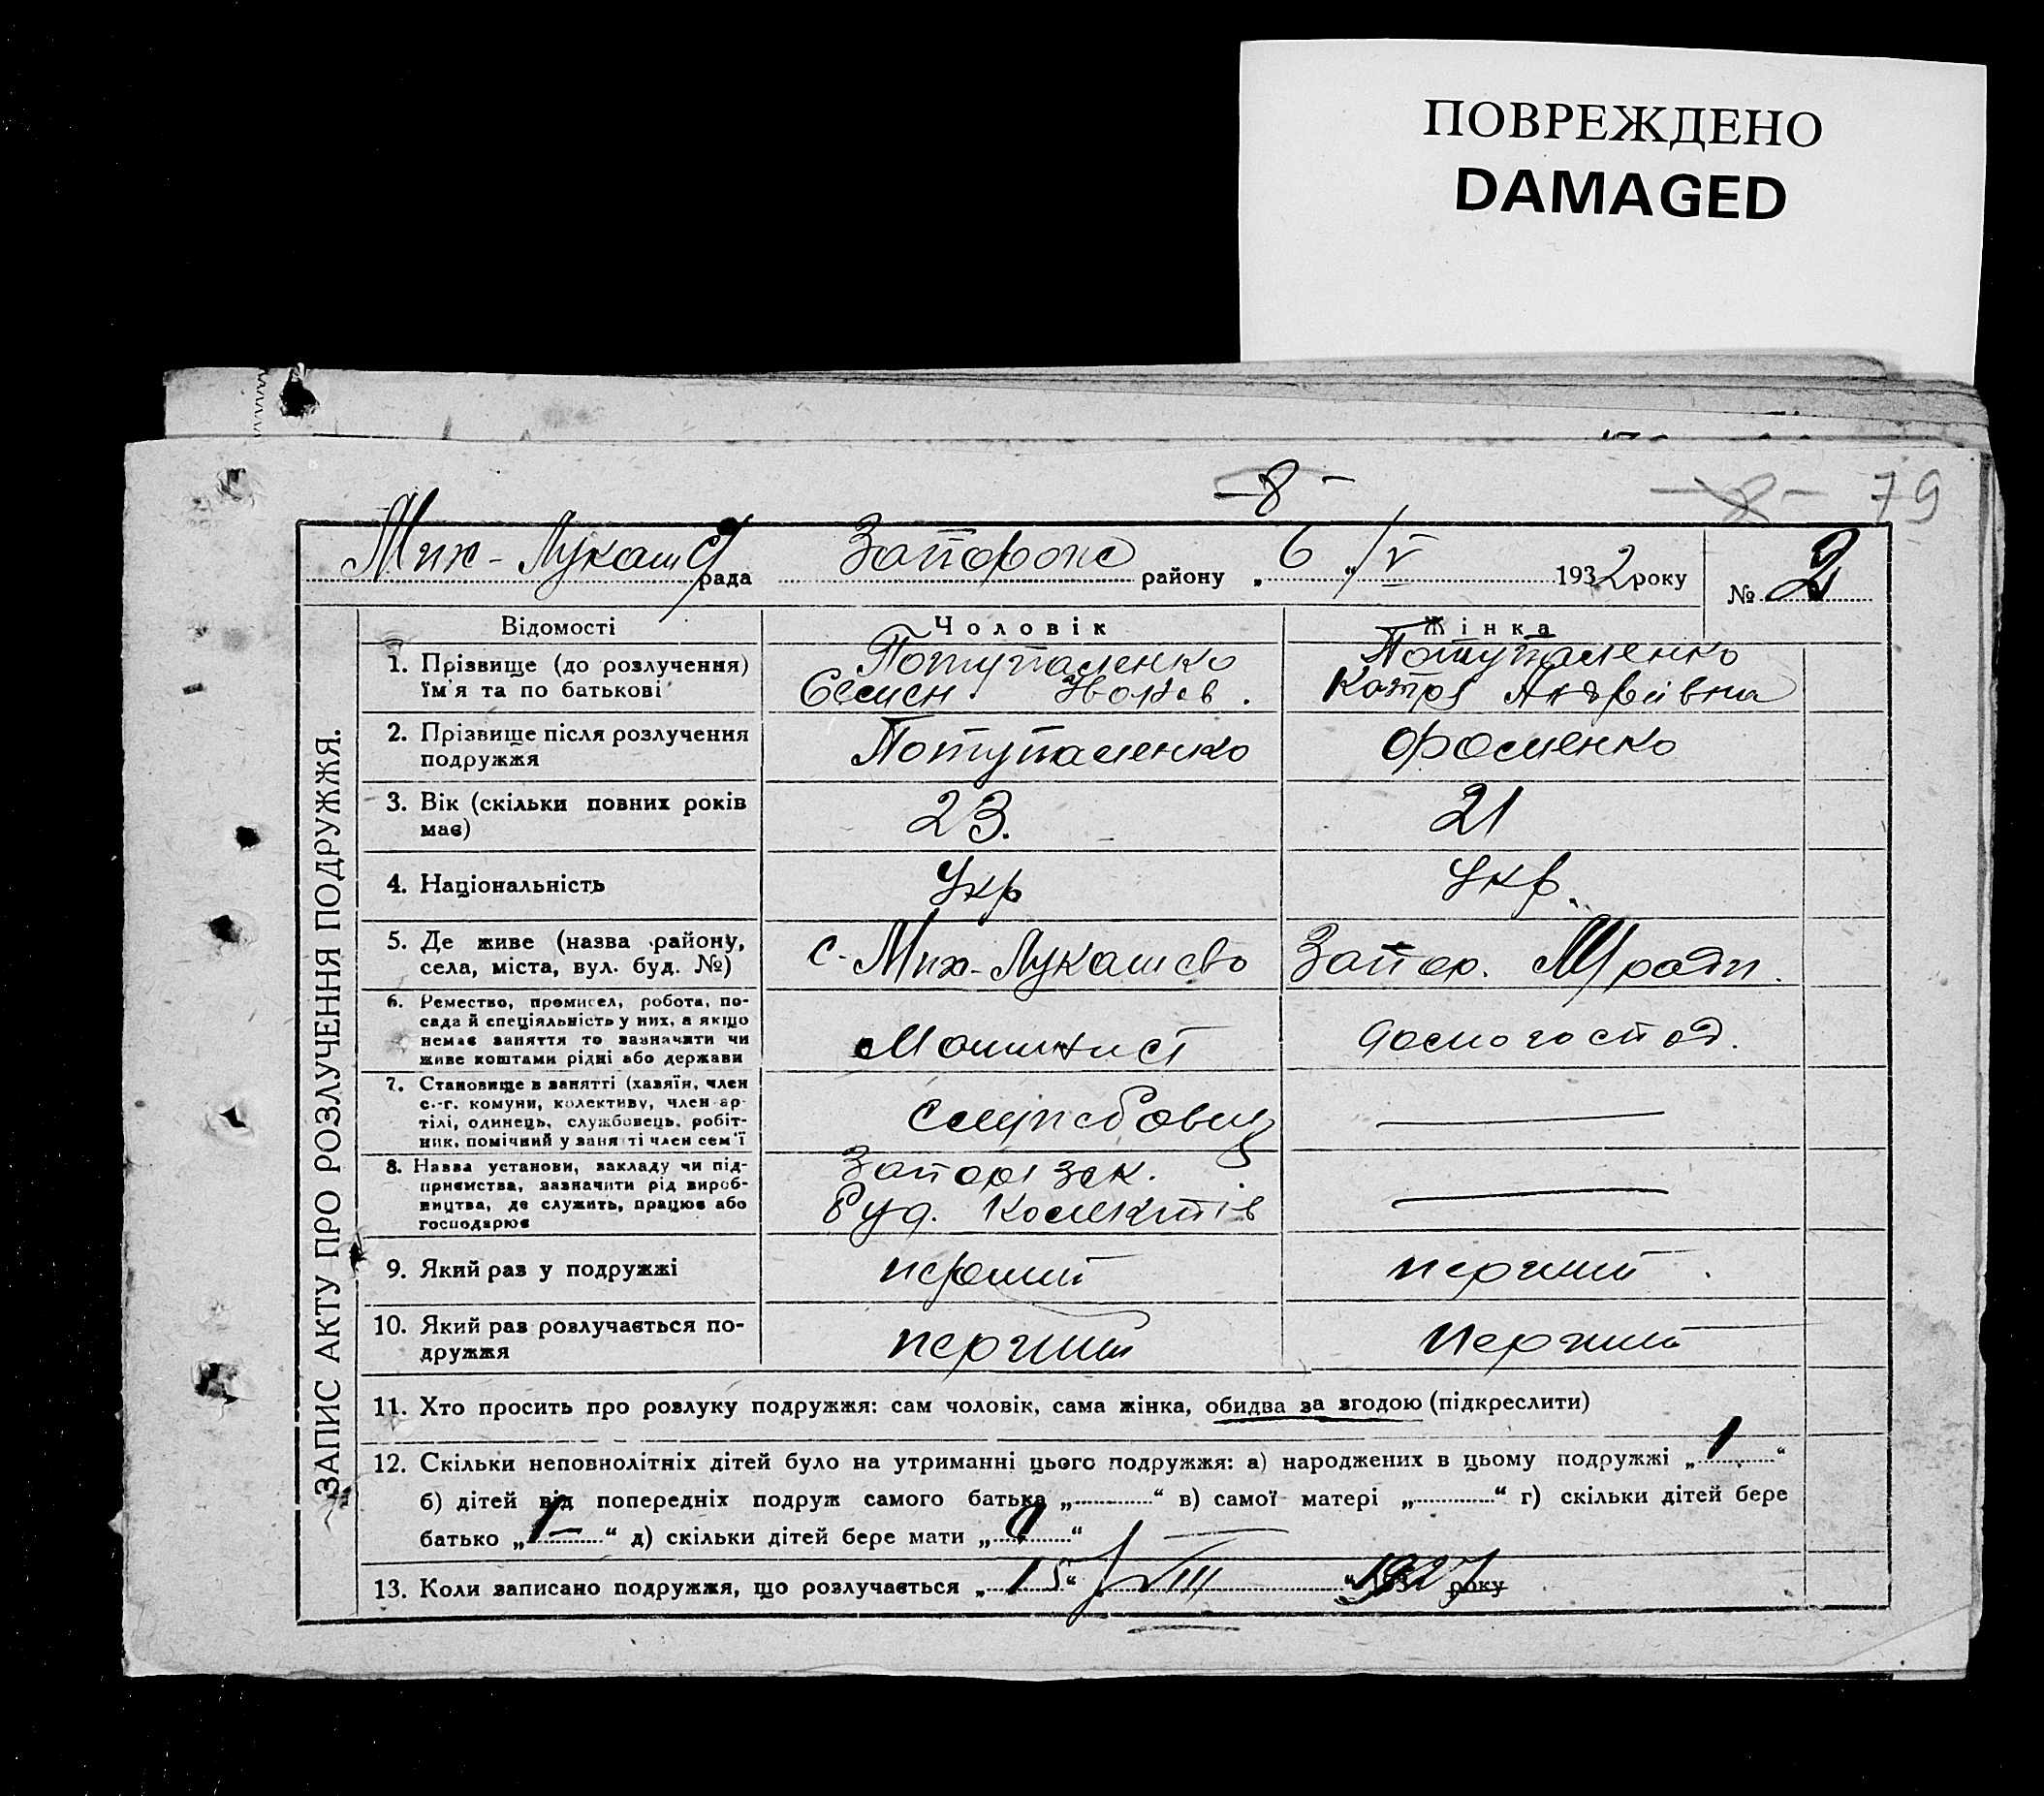 ПОВРЕЖДЕНО
DAMAGED
-8-
-8- 79
Мих-Лукаш с/рада Запорожс району „6“ /V 1932 року № 2
ЗАПИС АКТУ ПРО РОЗЛУЧЕННЯ ПОДРУЖЖЯ.
Відомості Чоловік Жінка
1. Прізвище (до розлучення) Потупаленко Потупаленко
ім'я та по батькові Семен Яковл. Катря Андріївна
2. Прізвище після розлучення Потупаленко Фоменко
подружжя
3. Вік (скільки повних років 23. 21
має)
4. Національність Укр Укр.
5. Де живе (назва району, с. Мих-Лукашево Запор.
села, міста, вул. буд. №)
6. Ремество, промисел, робота, по-
сада й спеціяльність у них, а якщо Машиніст домогоспод.
немає заняття то зазначити чи
живе коштами рідні або держави
7. Становище в занятті (хазяїн, член
с.-г. комуни, колективу, член ар- Службовець ———
тілі, одинець, службовець, робіт-
ник, помічний у занятті член сем'ї
8. Назва установи, закладу чи під- Запорізьк. ———
приємства, зазначити рід вироб-
ництва, де служить, працює або Буд. Колектів
господарює
9. Який раз у подружжі перший перший
10. Який раз розлучається по- перший перший
дружжя
11. Хто просить про розлуку подружжя: сам чоловік, сама жінка, обидва за згодою (підкреслити)
12. Скільки неповнолітніх дітей було на утриманні цього подружжя: а) народжених в цьому подружжі „1“
б) дітей від попередніх подруж самого батька „ “ в) самої матері „ “ г) скільки дітей бере
батько „1-“ д) скільки дітей бере мати „0“
13. Коли записано подружжя, що розлучається „15“ /VIII 1927 року